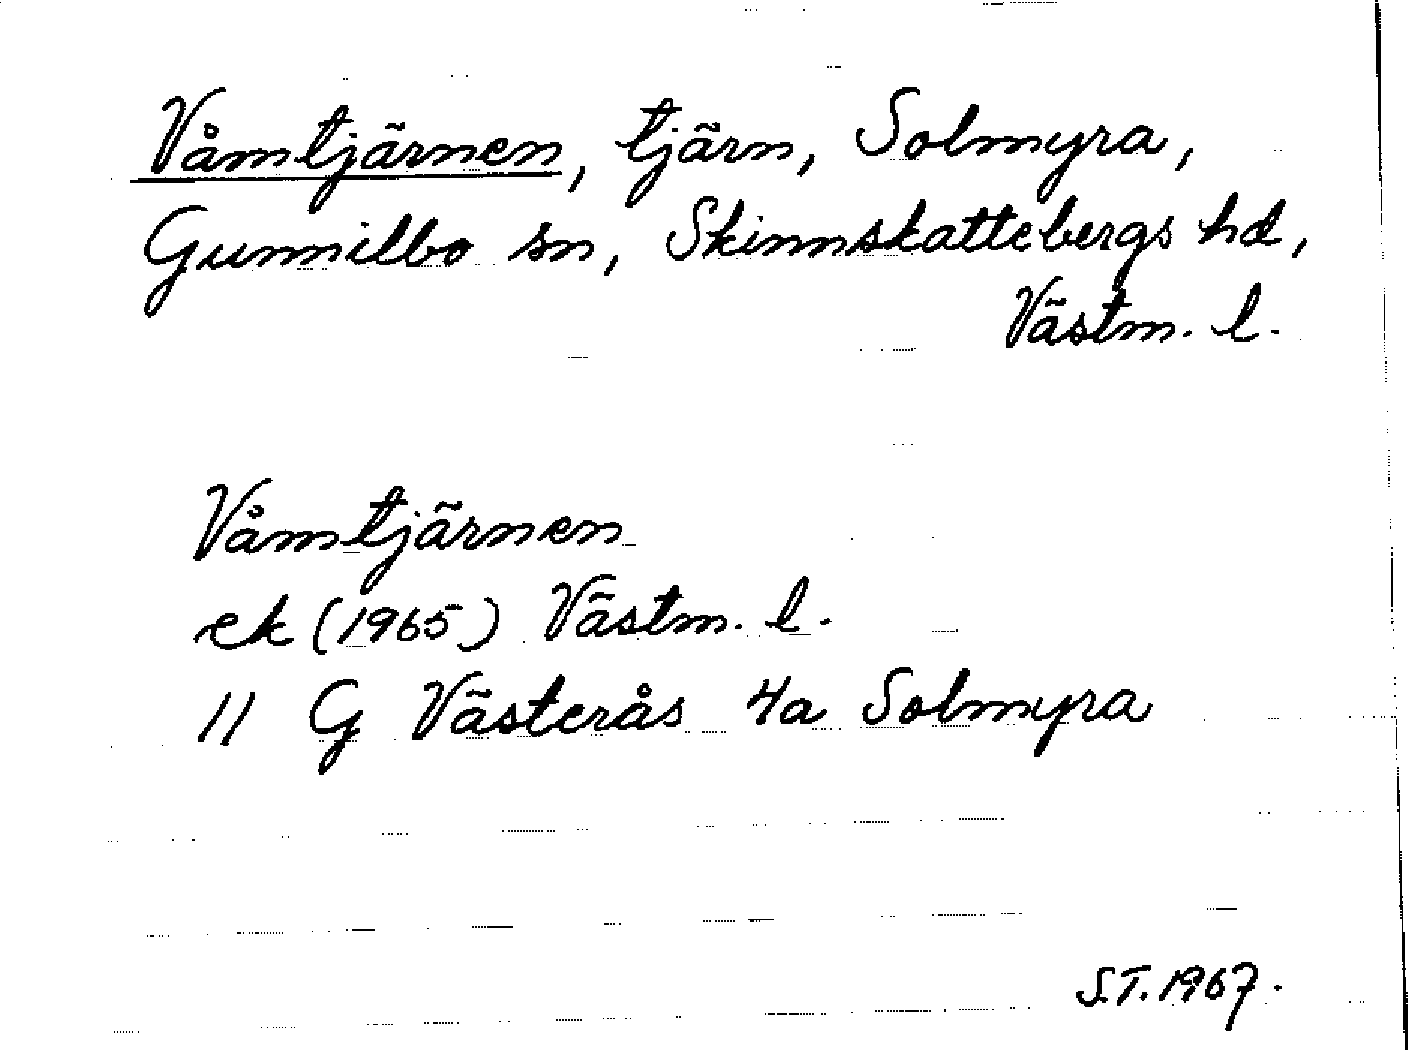 Våmtjärnen, tjärn, Solmyra,
Gunnilbo sn, Skinnskattebergs hd,
Västm. l.
Våmtjärnen
ek (1965) Västm. l.
11 G Västerås 4a Solmyra
S.T. 1967.